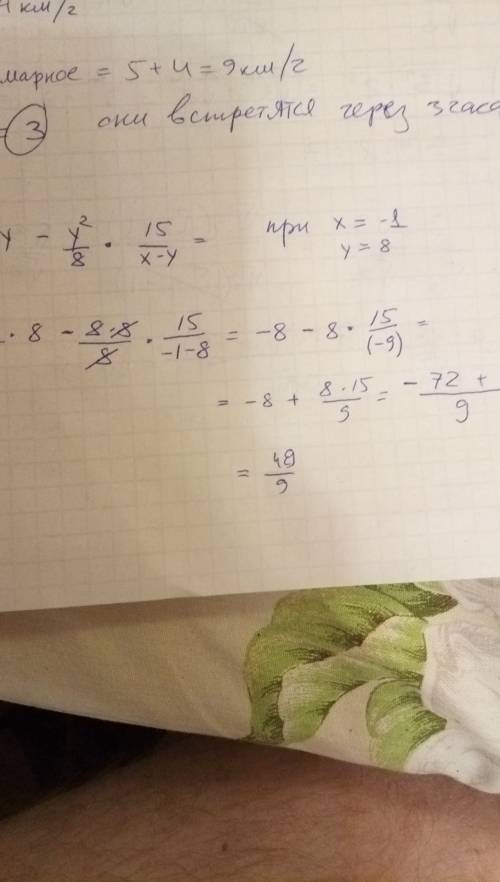 км/г
марное = 5+4=9км/г
= 3 они встретятся через 3 часа
y - y²/8 · 15/(x-y) = при x = -1
y = 8
· 8 - 8·8/8 · 15/(-1-8) = -8 - 8 · 15/(-9) =
= -8 + 8·15/9 = -72 +/9
= 48/9